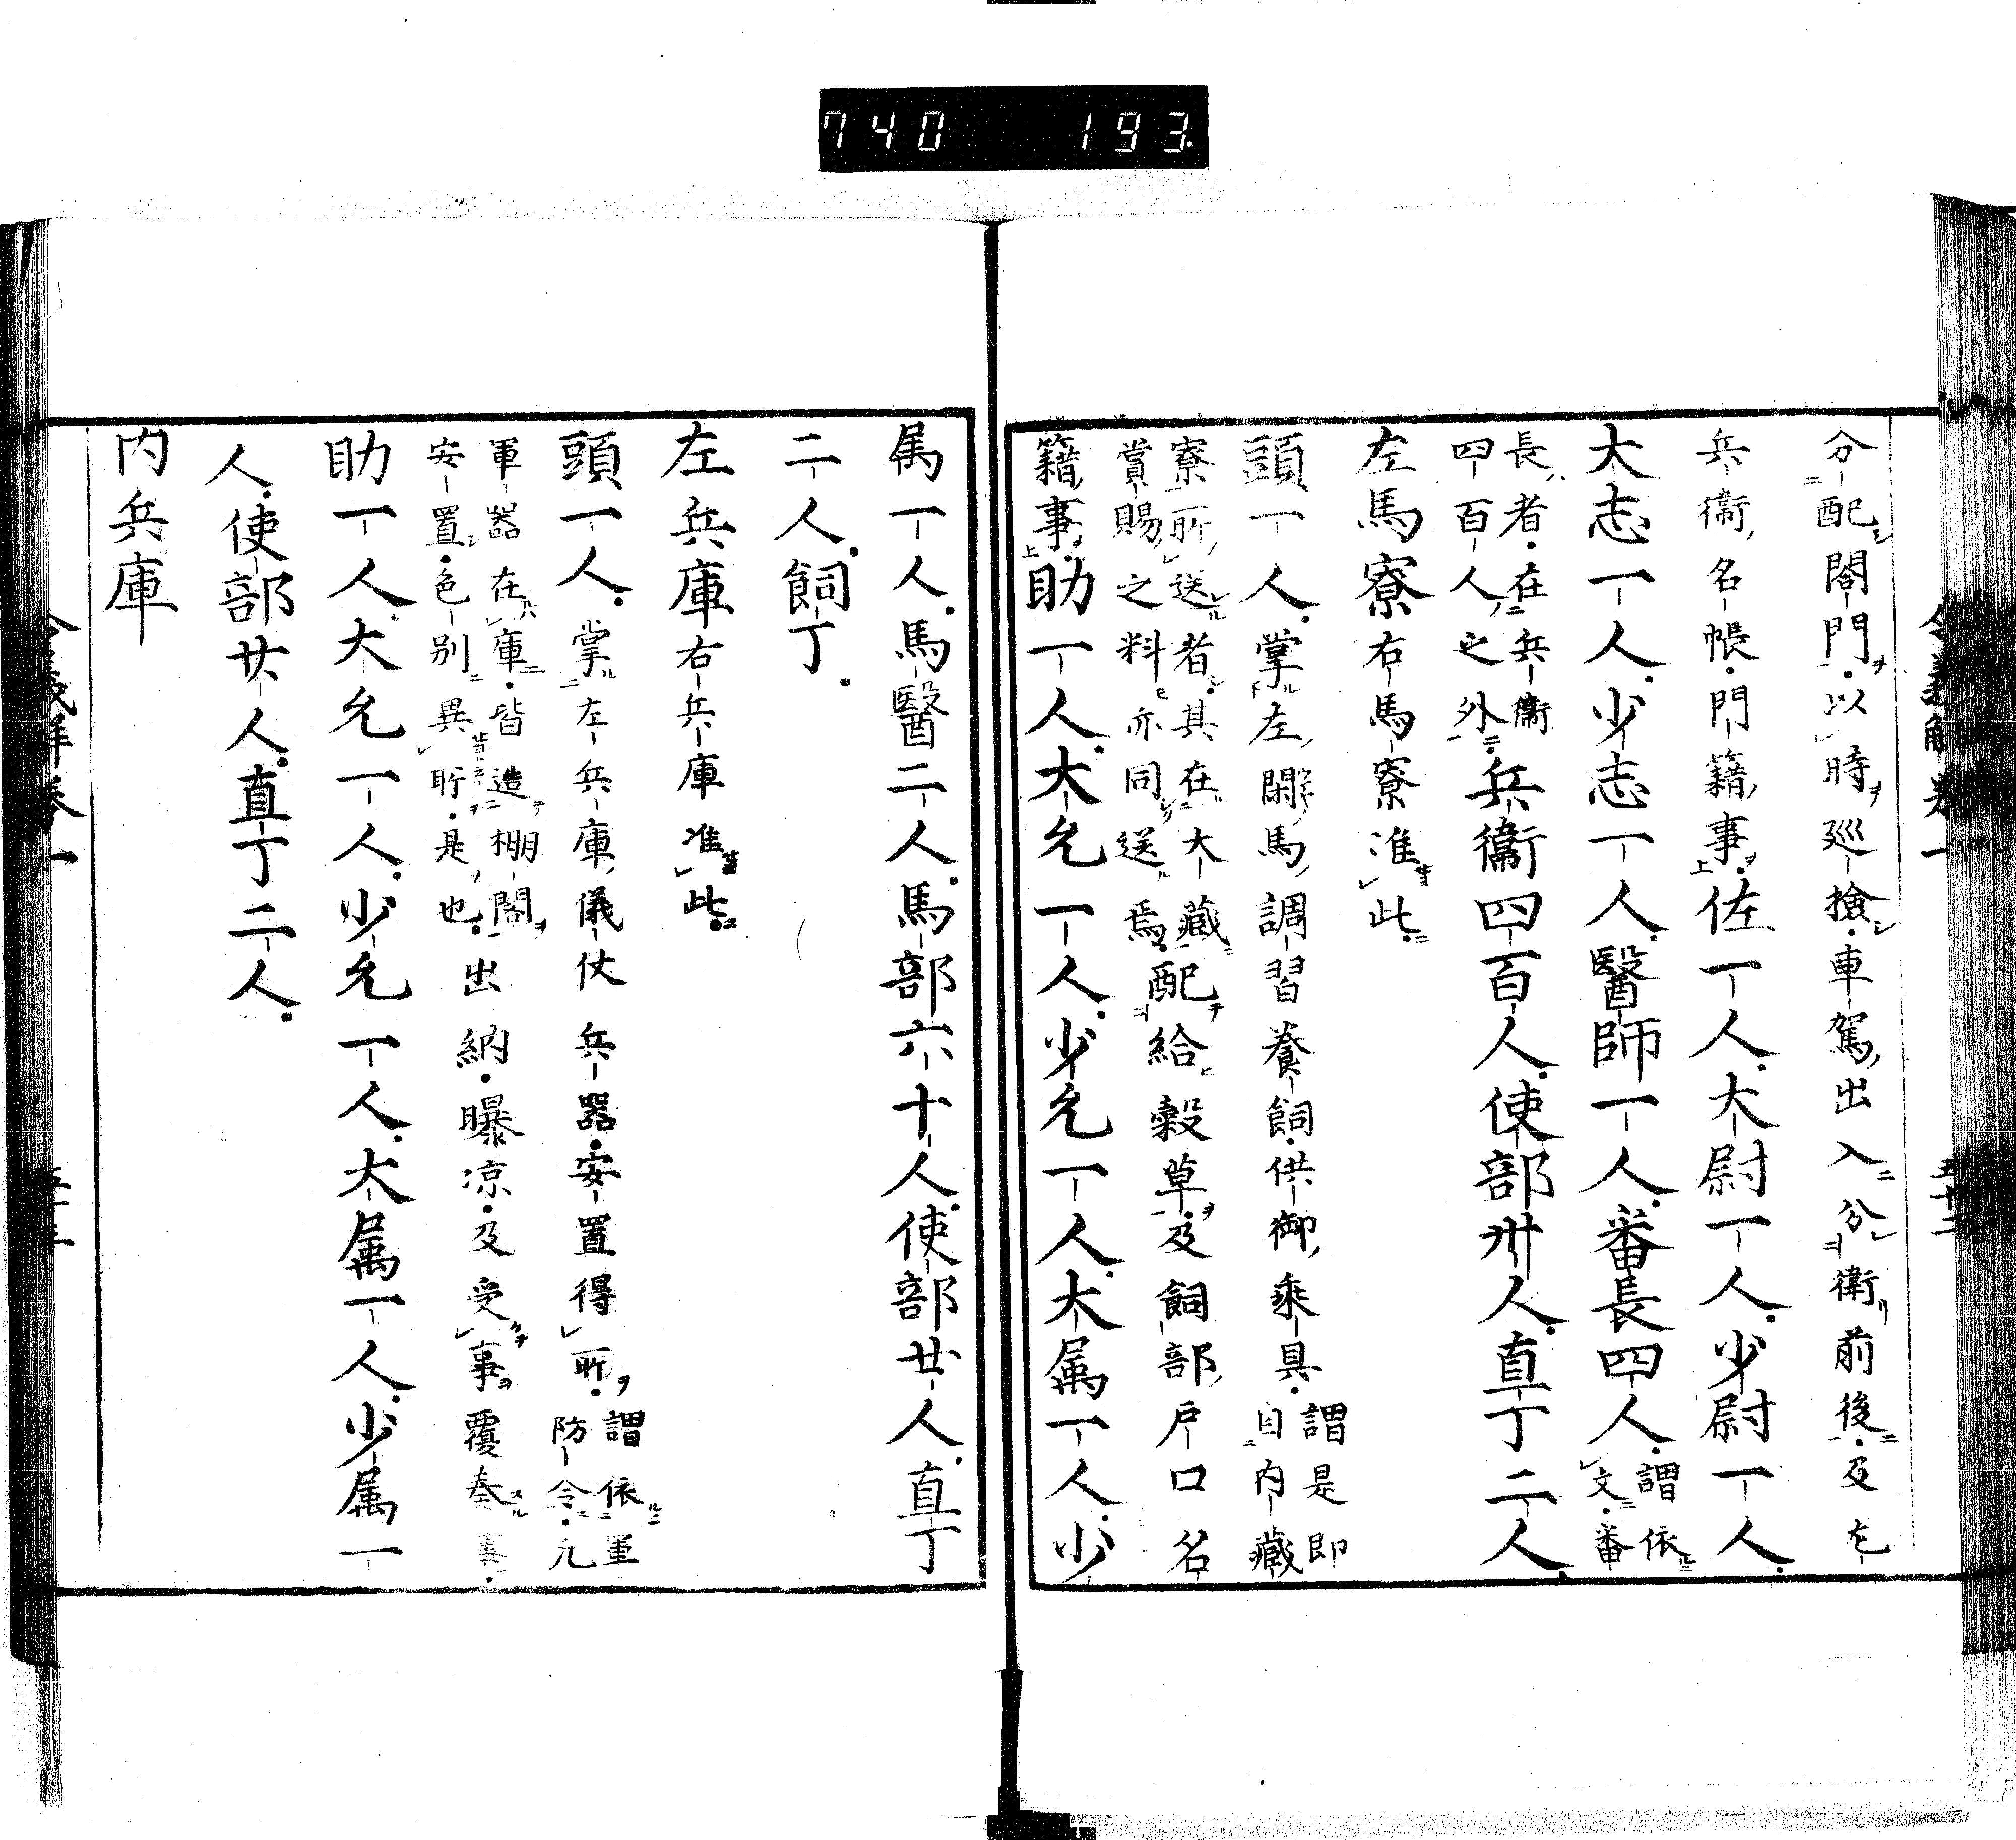 740 193
分配閤門以時巡撿車駕出入分衛前後及左
兵衛名帳門籍事佐一人大尉一人少尉一人
大志一人少志一人醫師一人番長四人謂依文番
長者在兵衛四百人之外兵衛四百人使部卅人直丁二人
左馬寮右馬寮准此
頭一人掌左閑馬調習養飼供御乘具謂是即自内藏
寮所送者其在大藏賞賜之料亦同送焉配給穀草及飼部戸口名
籍事助一人大允一人少允一人大属一人少
属一人馬醫二人馬部六十人使部廿人直丁
二人飼丁
左兵庫右兵庫准此
頭一人掌左兵庫儀仗兵器安置得所謂依軍防令凡
軍器在庫皆造棚閣安置色別異所是也出納曝凉及受事覆奏事
助一人大允一人少允一人大属一人少属一
人使部廿人直丁二人
内兵庫